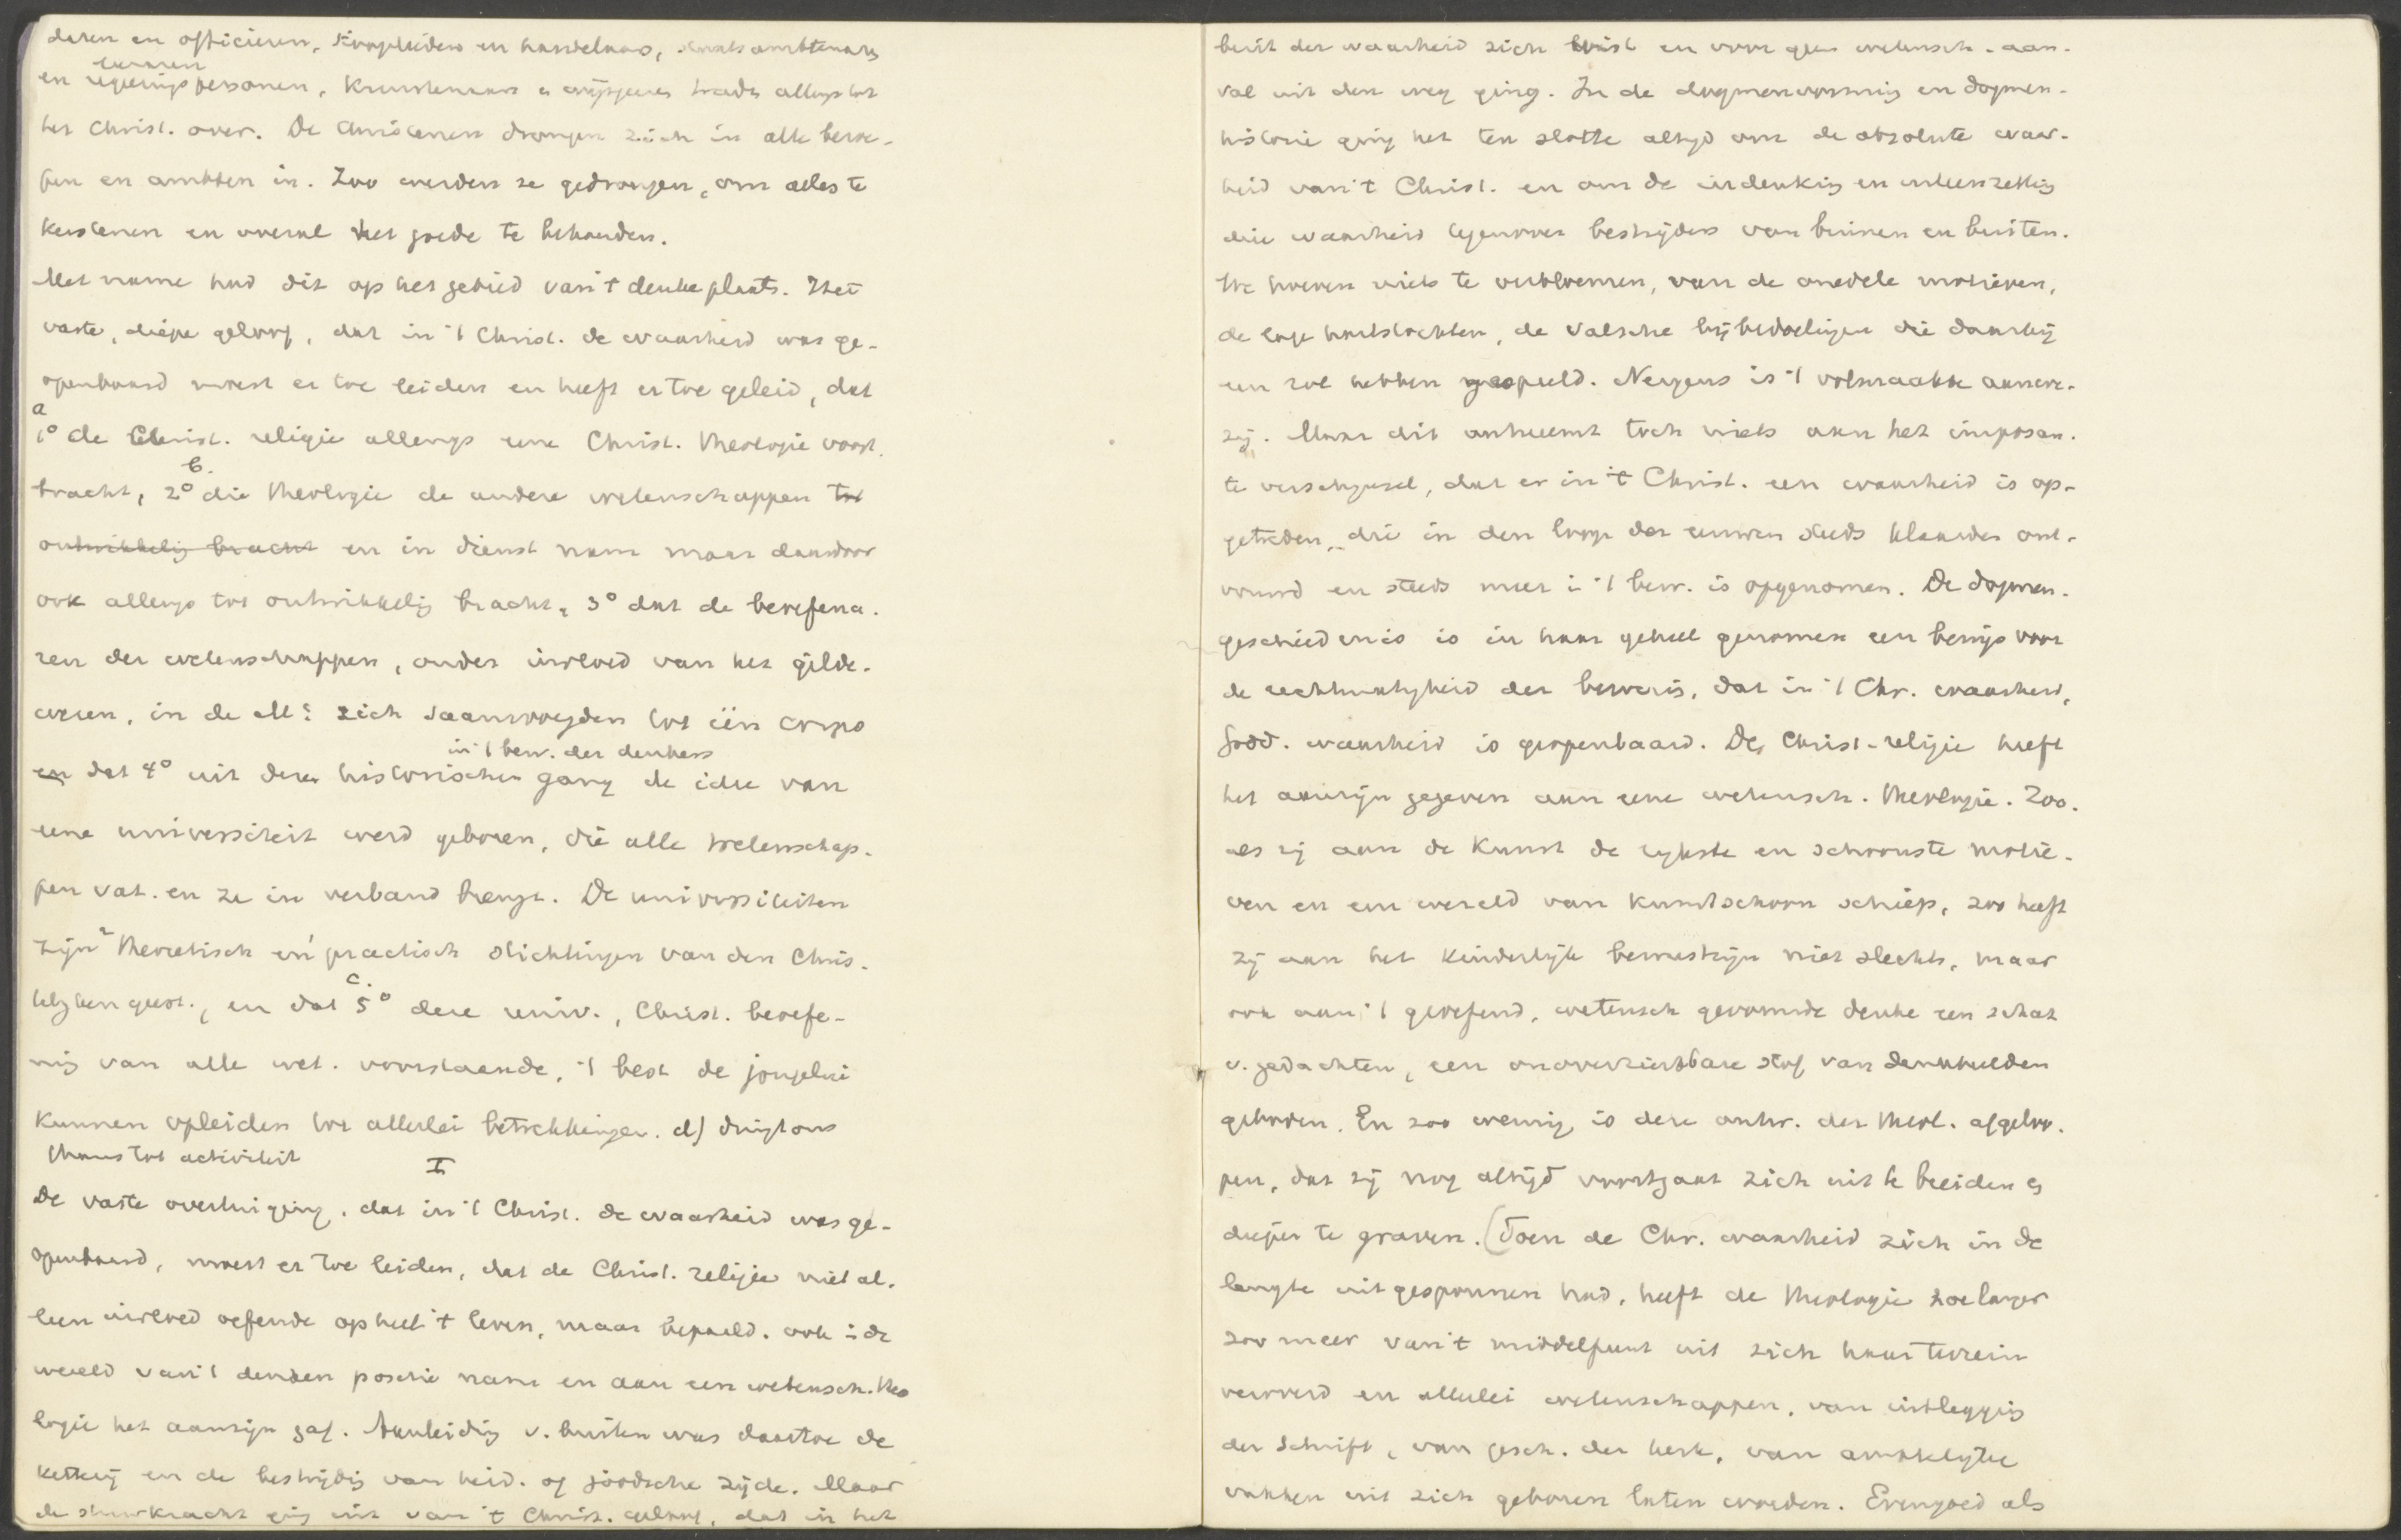 deren en officieren, kooplieden en handelaars, staatsambtenaren
en regeeringspersonen, Kunstenaars en wijsgeeren traden allengs tot
het Christ. over. De Christenen drongen zich in alle beroe-
pen en ambten in. Zoo werden ze gedrongen, om alles te
kerstenen en overal het goede te behouden.
Met name had dit op het gebied van 't denken plaats. Het
vaste, diepe geloof, dat in 't Christ. de waarheid was ge-
openbaard moest er toe leiden en heeft er toe geleid, dat
a
1° de Christ. religie allengs eene Christ. theologie voort-
b.
bracht, 2° die theologie de andere wetenschappen tot
ontwikkeling bracht en in dienst nam maar daardoor
ook allengs tot ontwikkeling bracht, 3° dat de beoefena-
ren der wetenschappen, onder invloed van het gilde-
wezen, in de M: zich saamvoegden tot één corps
in 't bew. der denkers
en dat 4° uit dezen historischen gang de idee van
eene universiteit werd geboren, die alle wetenschap-
pen vat en ze in verband brengt. De universiteiten
zijn theoretisch en practisch stichtingen van den Chris-
c.
telijken geest, en dat 5° deze univ., Christ. beoefe-
ning van alle wet. voorstaande, 't best de jongelui
kunnen opleiden tot allerlei betrekkingen. d) dringt ons
thans tot activiteit
I
De vaste overtuiging, dat in 't Christ. de waarheid was ge-
openbaard, moest er toe leiden, dat de Christ. religie niet al-
leen invloed oefende op heel 't leven, maar bepaald. ook i de
wereld van 't denken positie nam en aan een wetensch. theo
logie het aanzijn gaf. Aanleiding v. buiten was daartoe de
ketterij en de bestrijding van heid. of joodsche zijde. Maar
de stuwkracht ging uit van 't Christ. geloof, dat in het
bezit der waarheid zich wist en voor geen wetensch. aan-
val uit den weg ging. In de dogmenvorming en dogmen-
historie ging het ten slotte altijd om de absolute waar-
heid van 't Christ. en om de indenking en uiteenzetting
die waarheid tegenover bestrijders van binnen en buiten.
We hoeven niets te verbloemen, van de onedele motieven,
de lage hartstochten, de valsche bijbedoelingen die daarbij
een rol hebben gespeeld. Nergens is 't volmaakte aanwe-
zig. Maar dit ontneemt toch niets aan het imposan-
te verschijnsel, dat er in 't Christ. een waarheid is op-
getreden, die in den loop der eeuwen steeds klaarder ont-
vouwd en steeds meer i 't bew. is opgenomen. De dogmen-
geschiedenis is in haar geheel genomen een bewijs voor
de rechtmatigheid der bewering, dat in 't Chr. waarheid,
Godd. waarheid is geopenbaard. De Christ-religie heeft
het aanzijn gegeven aan eene wetensch. theologie. Zoo-
als zij aan de Kunst de rijkste en schoonste motie-
ven en een wereld van kunstschoon schiep, zoo heeft
zij aan het kinderlijk bewustzijn niet slechts, maar
ook aan 't geoefend, wetensch gevormde denken een schat
v. gedachten, een onoverzienbare stof van denkbeelden
geboden. En zoo weinig is deze ontw. der theol. afgeloo-
pen, dat zij nog altijd voortgaat zich uit te breiden en
dieper te graven. (Toen de Chr. waarheid zich in de
lengte uitgesponnen had, heeft de theologie hoe langer
zoo meer van 't middelpunt uit zich haar terrein
veroverd en allerlei wetenschappen, van uitlegging
der Schrift, van gesch. der kerk, van ambtelijke
vakken uit zich geboren laten worden. Evengoed als